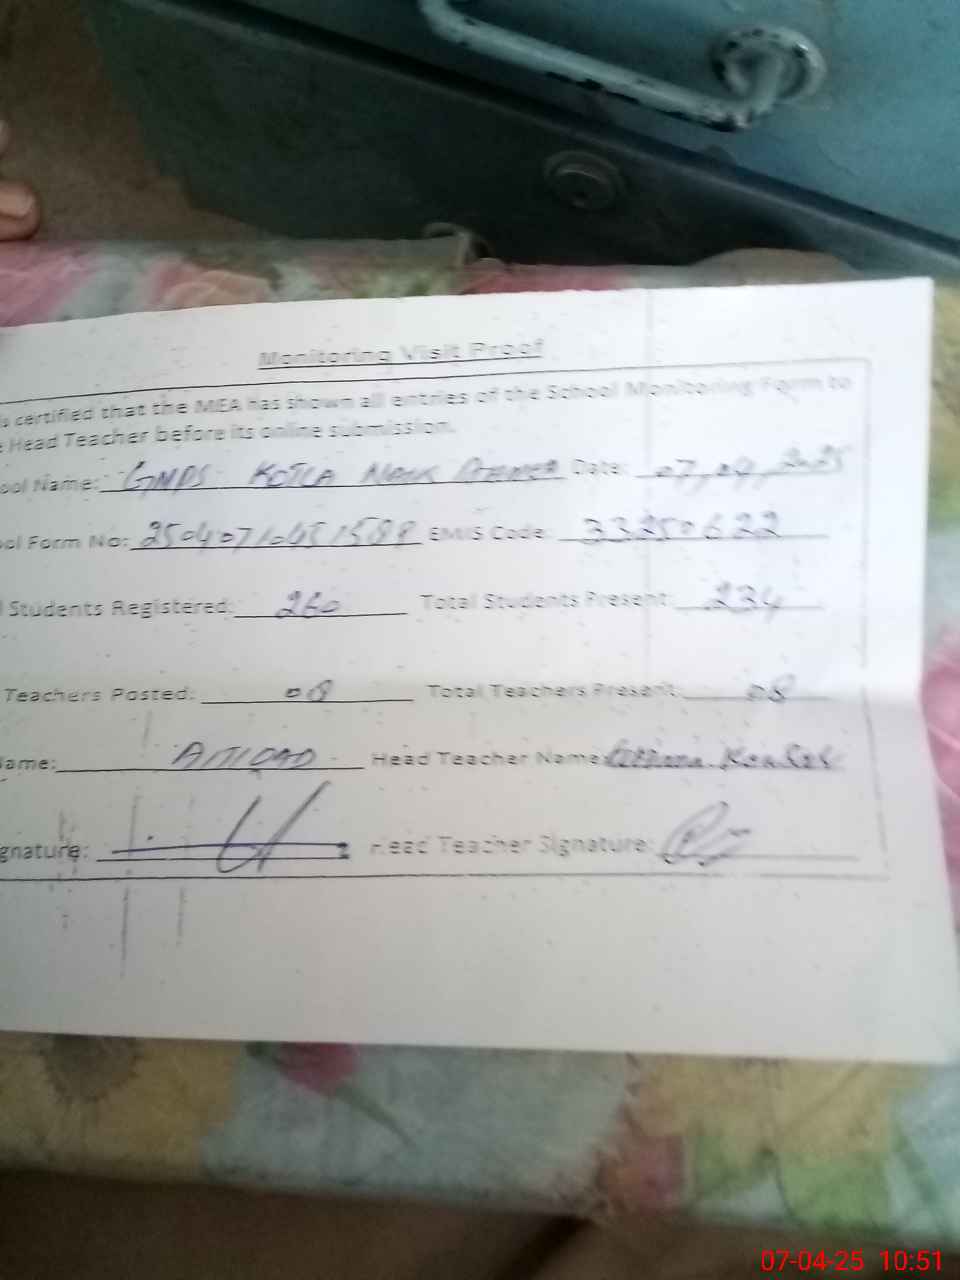 Monitoring Visit Proof
is certified that the MEA has shown all entries of the School Monitoring Form to
e Head Teacher before its online submission.
ool Name: GMPS KOTLA Date: 07,04,2025
ol Form No: EMIS Code: 33250622
l Students Registered: 260 Total Students Present: 234
Teachers Posted: 08 Total Teachers Present: 08
ame: Head Teacher Name:
gnature: Head Teacher Signature:
07-04-25 10:51